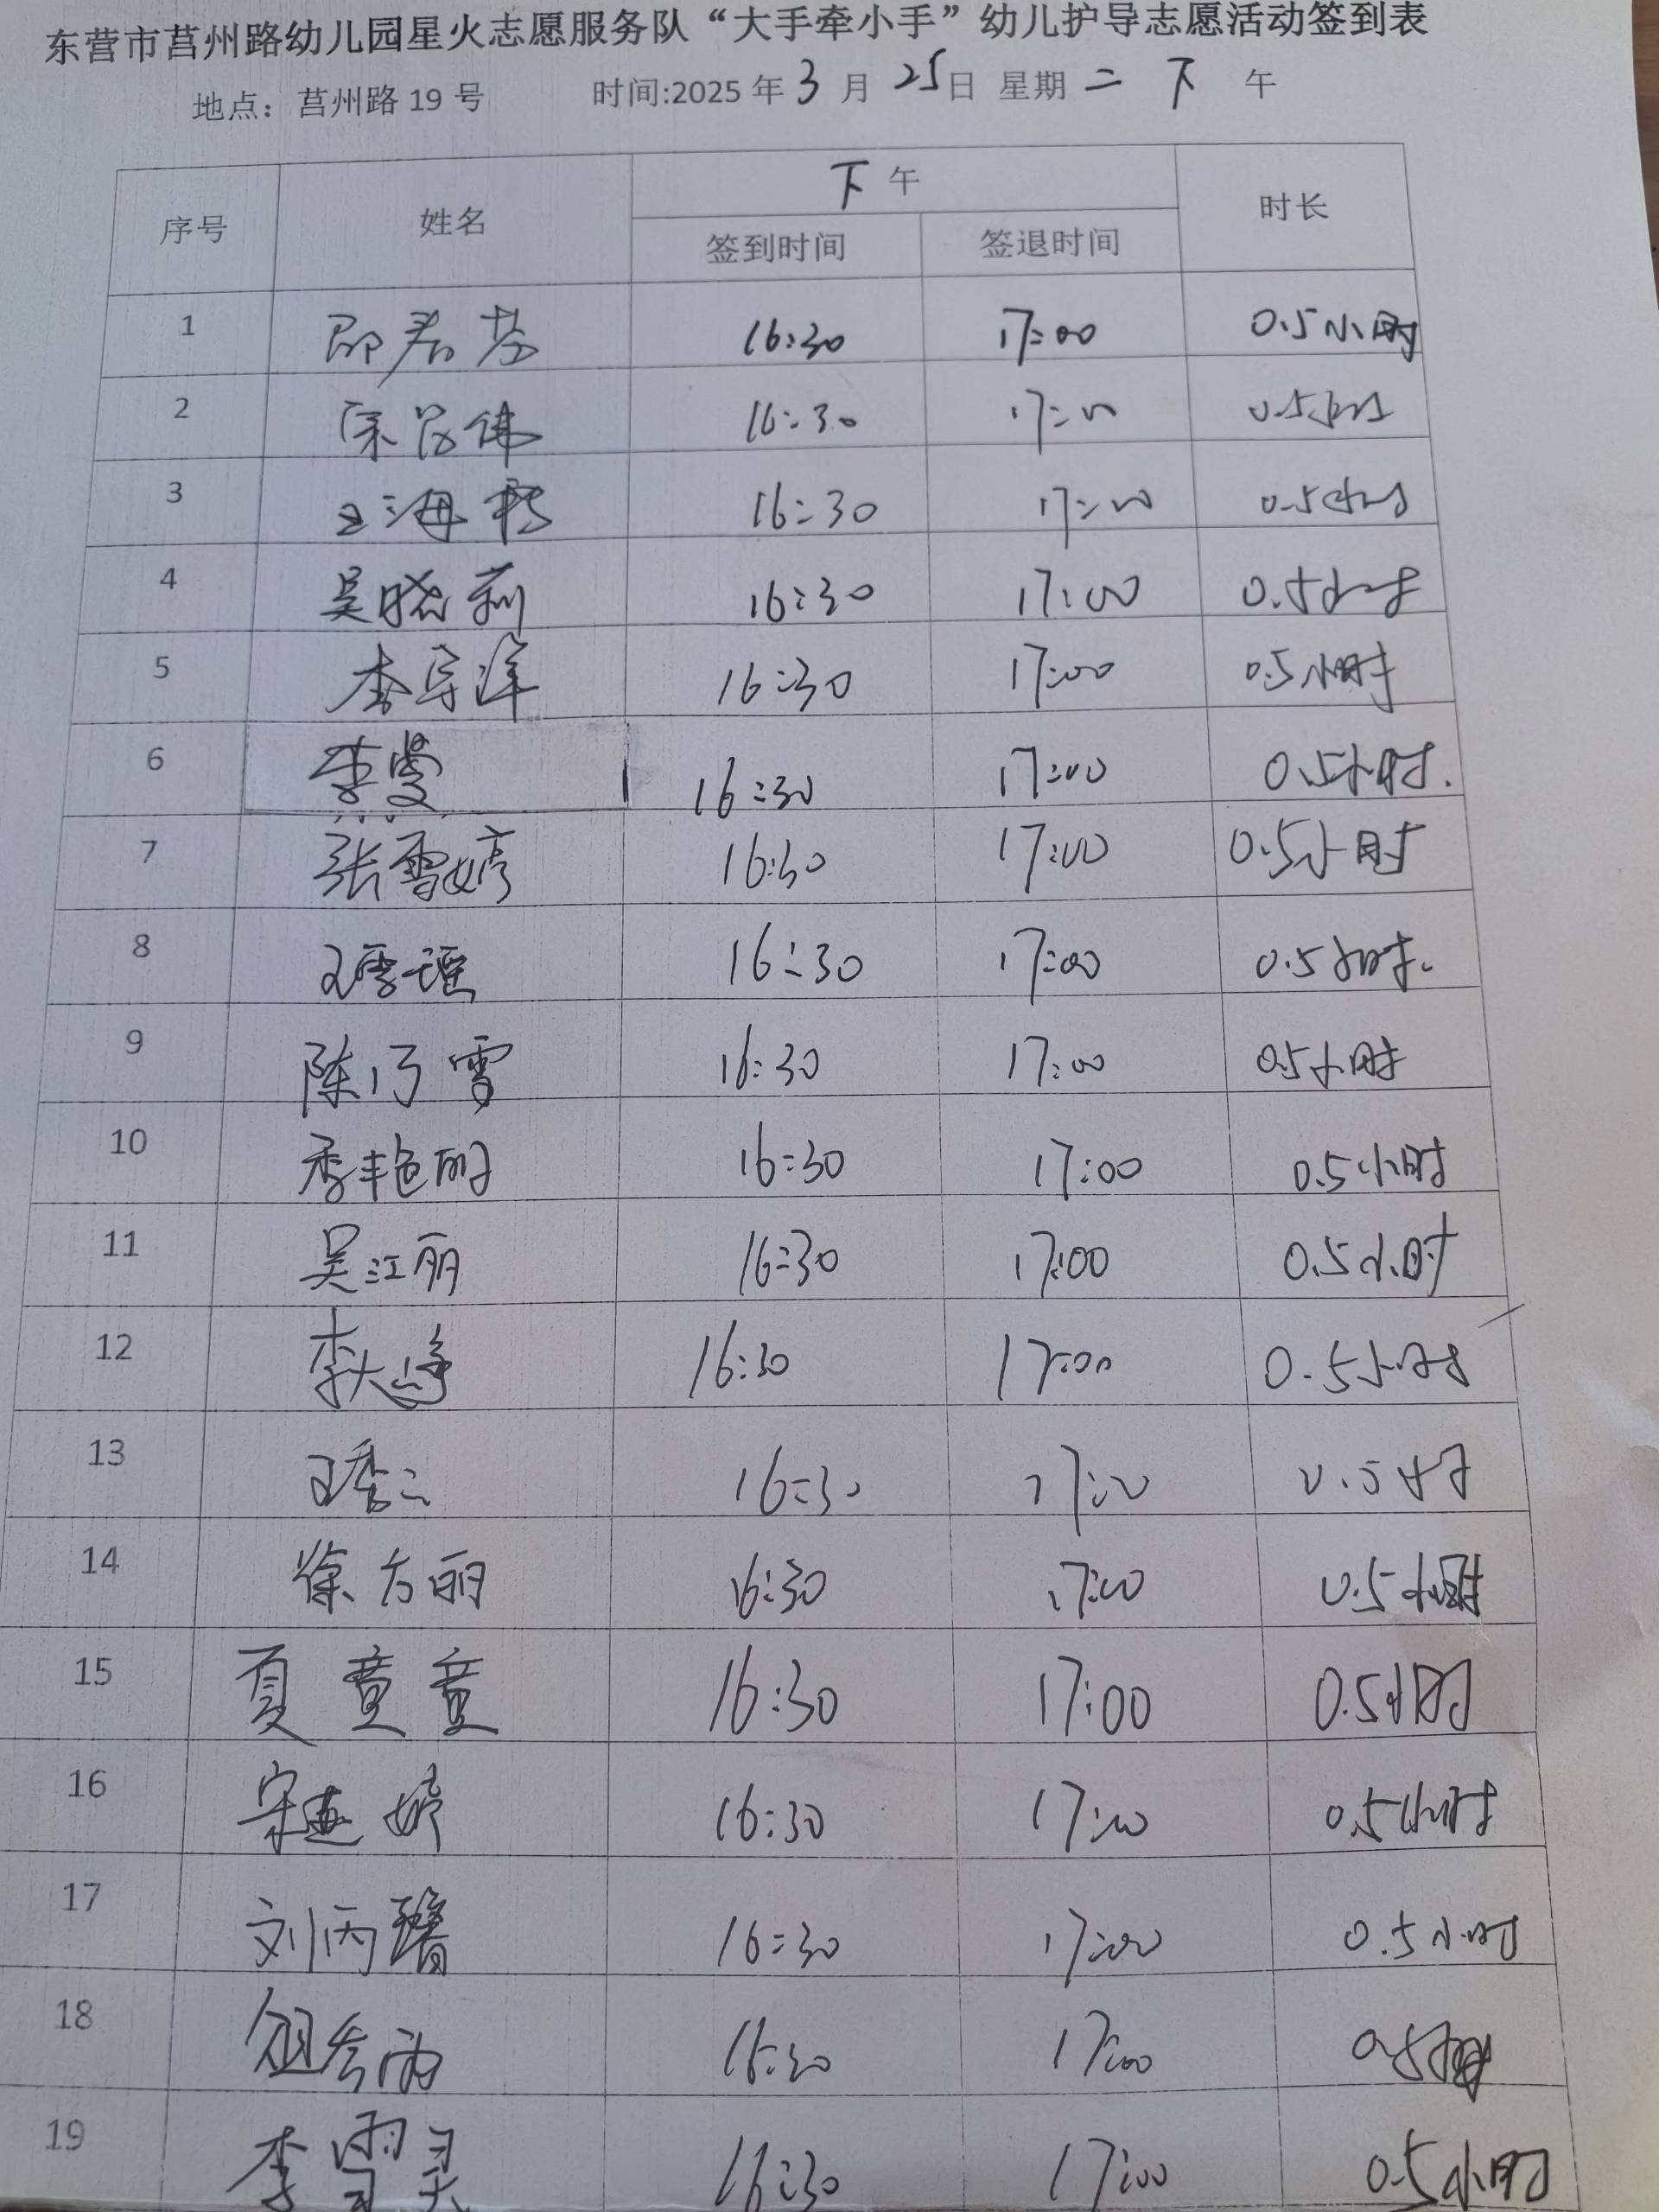 东营市莒州路幼儿园星火志愿服务队“大手牵小手”幼儿护导志愿活动签到表
地点：莒州路 19 号 时间:2025 年 3 月 25 日 星期 二 下 午
序号 姓名 下 午 时长
签到时间 签退时间
1 16:30 17:00 0.5小时
2 16:30 17:00 0.5小时
3 王海 16:30 17:00 0.5小时
4 吴晓莉 16:30 17:00 0.5小时
5 李 16:30 17:00 0.5小时
6 李雯 16:30 17:00 0.5小时.
7 张雪婷 16:30 17:00 0.5小时
8 王雪瑶 16:30 17:00 0.5小时.
9 陈巧雪 16:30 17:00 0.5小时
10 季艳丽 16:30 17:00 0.5小时
11 吴江丽 16:30 17:00 0.5小时
12 李 16:30 17:00 0.5小时
13 王秀 16:30 17:00 0.5小时
14 徐方丽 16:30 17:00 0.5小时
15 夏童童 16:30 17:00 0.5小时
16 宋 婷 16:30 17:00 0.5小时
17 刘丙 16:30 17:00 0.5小时
18 16:30 17:00 0.5小时
19 李 16:30 17:00 0.5小时